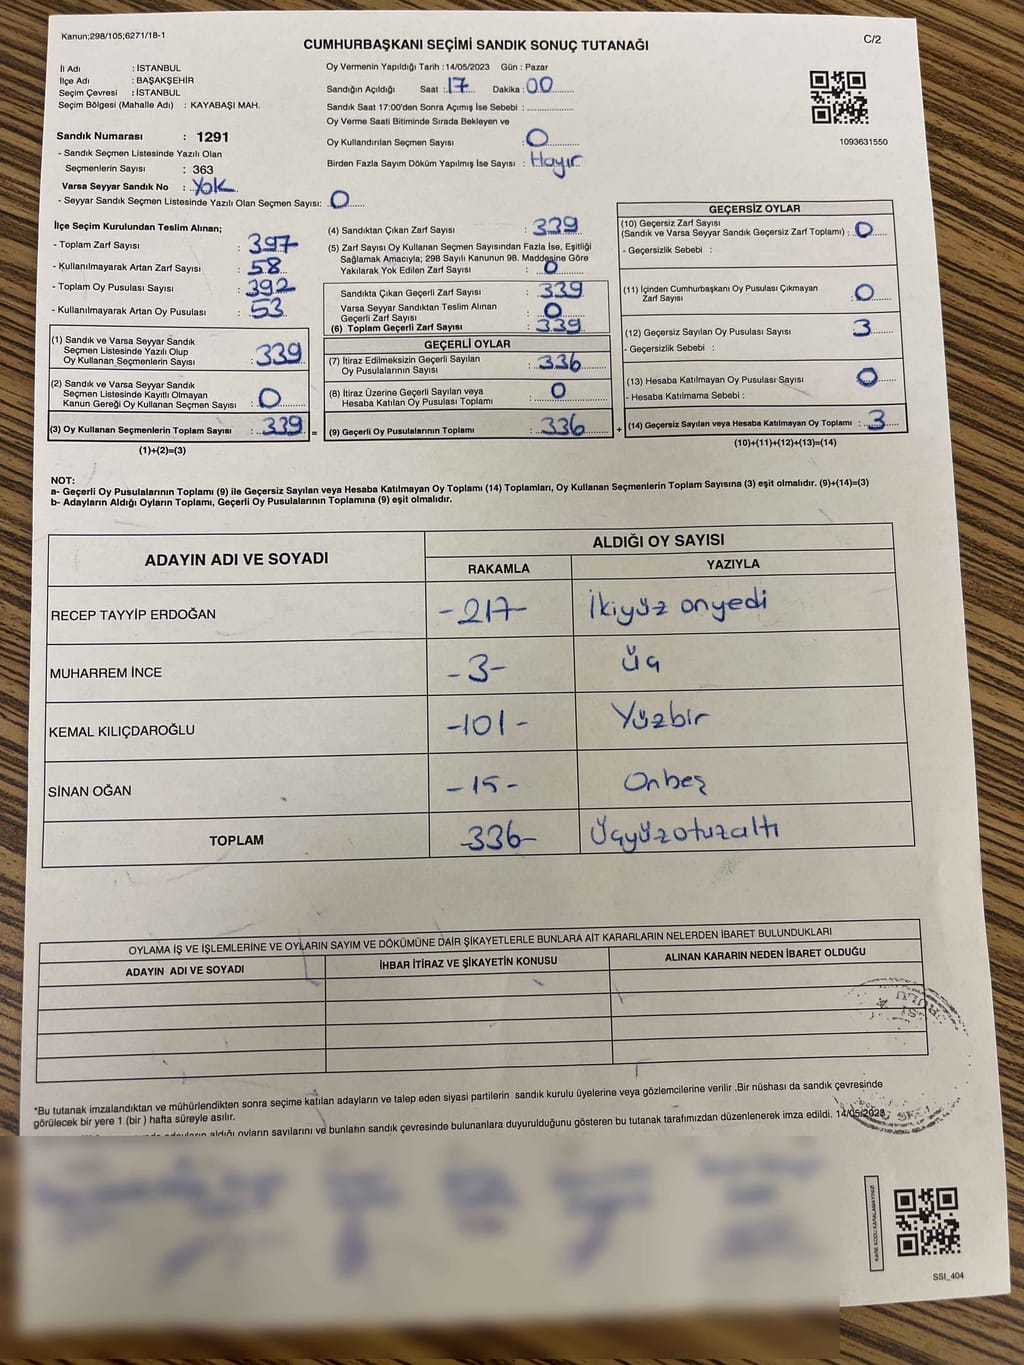 Kanun;298/105;6271/18-1
CUMHURBAŞKANI SEÇİMİ SANDIK SONUÇ TUTANAĞI
C/2
İl Adı : İSTANBUL
İlçe Adı : BAŞAKŞEHİR
Seçim Çevresi : İSTANBUL
Seçim Bölgesi (Mahalle Adı) : KAYABAŞI MAH.
Oy Vermenin Yapıldığı Tarih : 14/05/2023 Gün : Pazar
Sandığın Açıldığı Saat : 17 Dakika : 00
Sandık Saat 17:00'den Sonra Açımış İse Sebebi :
Oy Verme Saati Bitiminde Sırada Bekleyen ve
Oy Kullandırılan Seçmen Sayısı : 0
Birden Fazla Sayım Döküm Yapılmış İse Sayısı : Hayır
1093631550
Sandık Numarası : 1291
- Sandık Seçmen Listesinde Yazılı Olan
Seçmenlerin Sayısı : 363
Varsa Seyyar Sandık No : Yok
- Seyyar Sandık Seçmen Listesinde Yazılı Olan Seçmen Sayısı: 0
İlçe Seçim Kurulundan Teslim Alınan;
- Toplam Zarf Sayısı : 397
- Kullanılmayarak Artan Zarf Sayısı : 58
- Toplam Oy Pusulası Sayısı : 392
- Kullanılmayarak Artan Oy Pusulası : 53
(1) Sandık ve Varsa Seyyar Sandık
Seçmen Listesinde Yazılı Olup
Oy Kullanan Seçmenlerin Sayısı : 339
(2) Sandık ve Varsa Seyyar Sandık
Seçmen Listesinde Kayıtlı Olmayan
Kanun Gereği Oy Kullanan Seçmen Sayısı : 0
(3) Oy Kullanan Seçmenlerin Toplam Sayısı : 339 =
(1)+(2)=(3)
(4) Sandıktan Çıkan Zarf Sayısı : 339
(5) Zarf Sayısı Oy Kullanan Seçmen Sayısından Fazla İse, Eşitliği
Sağlamak Amacıyla; 298 Sayılı Kanunun 98. Maddesine Göre
Yakılarak Yok Edilen Zarf Sayısı : 0
Sandıkta Çıkan Geçerli Zarf Sayısı : 339
Varsa Seyyar Sandıktan Teslim Alınan
Geçerli Zarf Sayısı : 0
(6) Toplam Geçerli Zarf Sayısı : 339
GEÇERLİ OYLAR
(7) İtiraz Edilmeksizin Geçerli Sayılan
Oy Pusulalarının Sayısı : 336
(8) İtiraz Üzerine Geçerli Sayılan veya
Hesaba Katılan Oy Pusulası Toplamı : 0
(9) Geçerli Oy Pusulalarının Toplamı : 336 +
GEÇERSİZ OYLAR
(10) Geçersiz Zarf Sayısı
(Sandık ve Varsa Seyyar Sandık Geçersiz Zarf Toplamı) : 0
- Geçersizlik Sebebi :
(11) İçinden Cumhurbaşkanı Oy Pusulası Çıkmayan
Zarf Sayısı : 0
(12) Geçersiz Sayılan Oy Pusulası Sayısı : 3
- Geçersizlik Sebebi :
(13) Hesaba Katılmayan Oy Pusulası Sayısı : 0
- Hesaba Katılmama Sebebi :
(14) Geçersiz Sayılan veya Hesaba Katılmayan Oy Toplamı : 3
(10)+(11)+(12)+(13)=(14)
NOT:
a- Geçerli Oy Pusulalarının Toplamı (9) ile Geçersiz Sayılan veya Hesaba Katılmayan Oy Toplamı (14) Toplamları, Oy Kullanan Seçmenlerin Toplam Sayısına (3) eşit olmalıdır. (9)+(14)=(3)
b- Adayların Aldığı Oyların Toplamı, Geçerli Oy Pusulalarının Toplamına (9) eşit olmalıdır.
ADAYIN ADI VE SOYADI ALDIĞI OY SAYISI
RAKAMLA YAZIYLA
RECEP TAYYİP ERDOĞAN -217- İkiyüz onyedi
MUHARREM İNCE -3- üç
KEMAL KILIÇDAROĞLU -101- Yüzbir
SİNAN OĞAN -15- Onbeş
TOPLAM -336- Üçyüzotuzaltı
OYLAMA İŞ VE İŞLEMLERİNE VE OYLARIN SAYIM VE DÖKÜMÜNE DAİR ŞİKAYETLERLE BUNLARA AİT KARARLARIN NELERDEN İBARET BULUNDUKLARI
ADAYIN ADI VE SOYADI İHBAR İTİRAZ VE ŞİKAYETİN KONUSU ALINAN KARARIN NEDEN İBARET OLDUĞU
*Bu tutanak imzalandıktan ve mühürlendikten sonra seçime katılan adayların ve talep eden siyasi partilerin sandık kurulu üyelerine veya gözlemcilerine verilir .Bir nüshası da sandık çevresinde
görülecek bir yere 1 (bir ) hafta süreyle asılır.
aldığı oyların sayılarını ve bunların sandık çevresinde bulunanlara duyurulduğunu gösteren bu tutanak tarafımızdan düzenlenerek imza edildi. 14/05/2023
KARE KODU KARALAMAYINIZ!
SSI_404